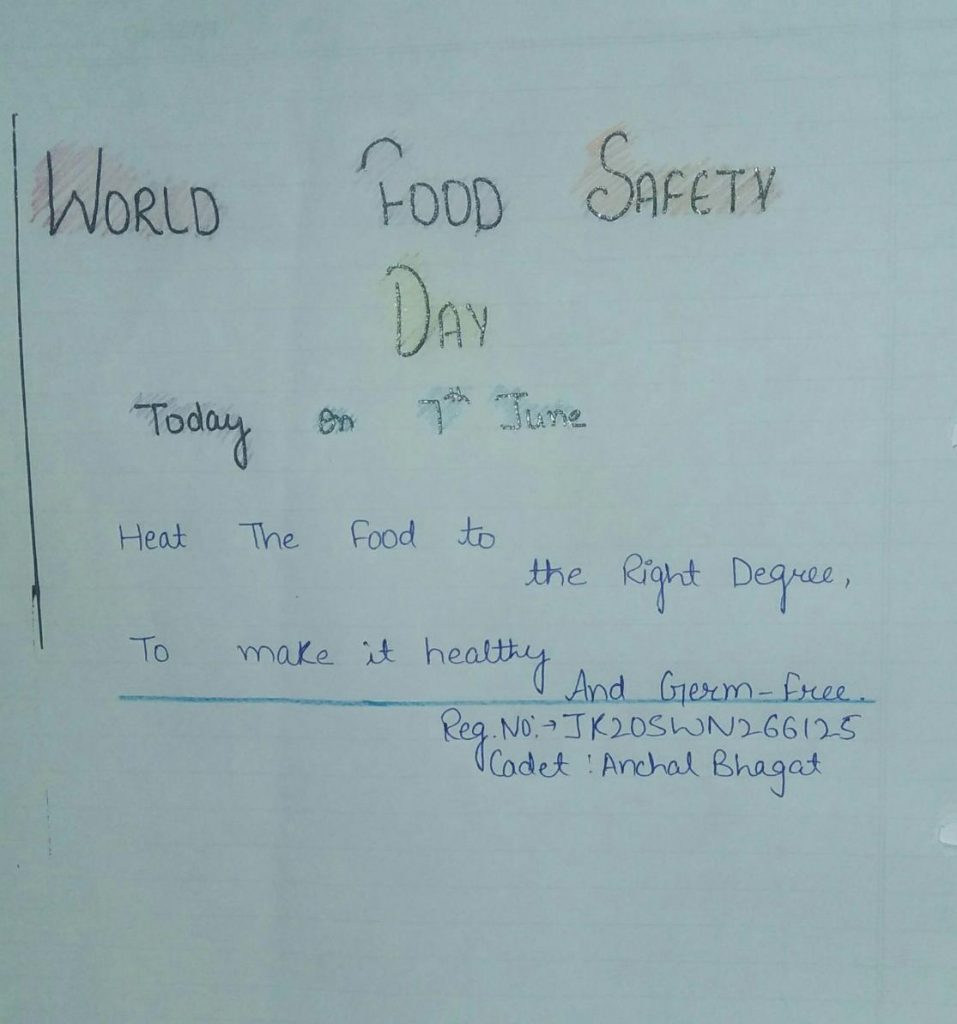 WORLD FOOD SAFETY
DAY
Today on 7th June
Heat The Food to
the Right Degree,
To make it healthy
And Germ-free.
Reg. No:→JK20SWN266125
Cadet : Anchal Bhagat